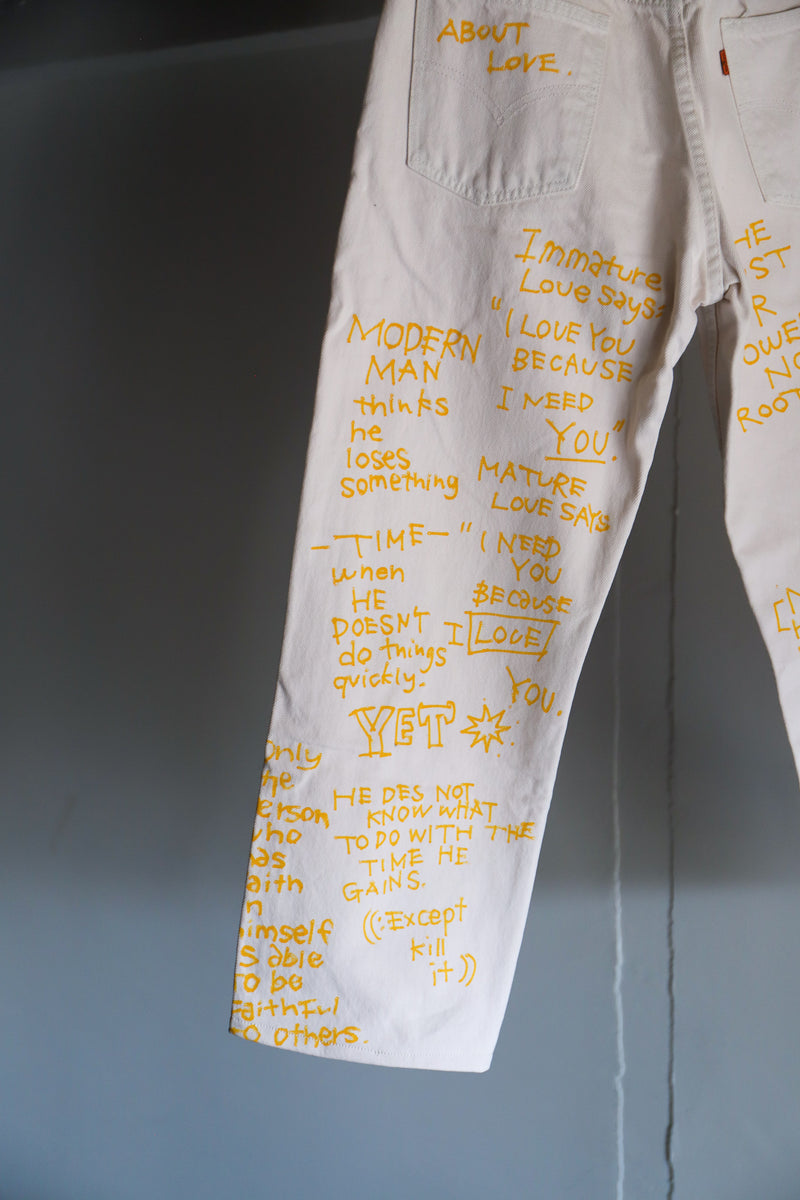 ABOUT
LOVE.
Immature
Love says:
"I LOVE YOU
BECAUSE
I NEED
YOU."
MATURE
LOVE SAYS
"I NEED
YOU
BECAUSE
I LOVE
YOU.
MODERN
MAN
thinks
he
loses
something
-TIME-
when
HE
DOESN'T
do things
quickly.
YET
HE DES NOT
KNOW WHAT
TO DO WITH THE
TIME HE
GAINS.
((:Except
kill
it))
only
he
erson
who
as
aith
n
imself
s able
o be
aithful
o others.
HE
ST
R
OWE
NO
ROOT